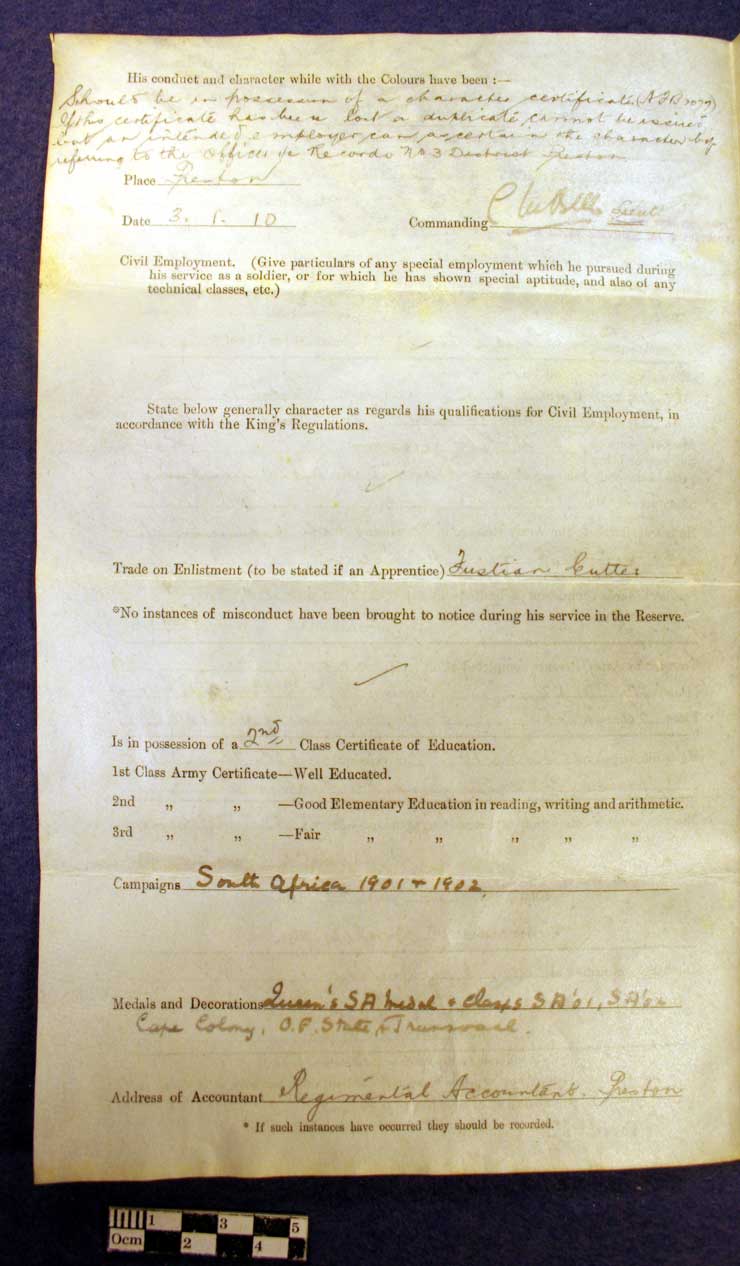 His conduct and character while with the Colours have been :—
Should be in possession of a character certificate (A F B 2079)
If this certificate has been lost a duplicate cannot be issued
but an intended employer can ascertain the character by
referring to the Officer i/c Records No 3 District Preston
Place Preston
Date 3. 1. 10 Commanding Lieut
Civil Employment. (Give particulars of any special employment which he pursued during
his service as a soldier, or for which he has shown special aptitude, and also of any
technical classes, etc.)
State below generally character as regards his qualifications for Civil Employment, in
accordance with the King's Regulations.
Trade on Enlistment (to be stated if an Apprentice) Fustian Cutter
*No instances of misconduct have been brought to notice during his service in the Reserve.
Is in possession of a 2nd Class Certificate of Education.
1st Class Army Certificate—Well Educated.
2nd „ „ —Good Elementary Education in reading, writing and arithmetic.
3rd „ „ —Fair „ „ „ „ „
Campaigns South Africa 1901 + 1902
Medals and Decorations Queen's SA medal + clasps SA '01, SA '02
Cape Colony, O.F. State, Transvaal.
Address of Accountant Regimental Accountant. Preston
* If such instances have occurred they should be recorded.
0cm 1 2 3 4 5